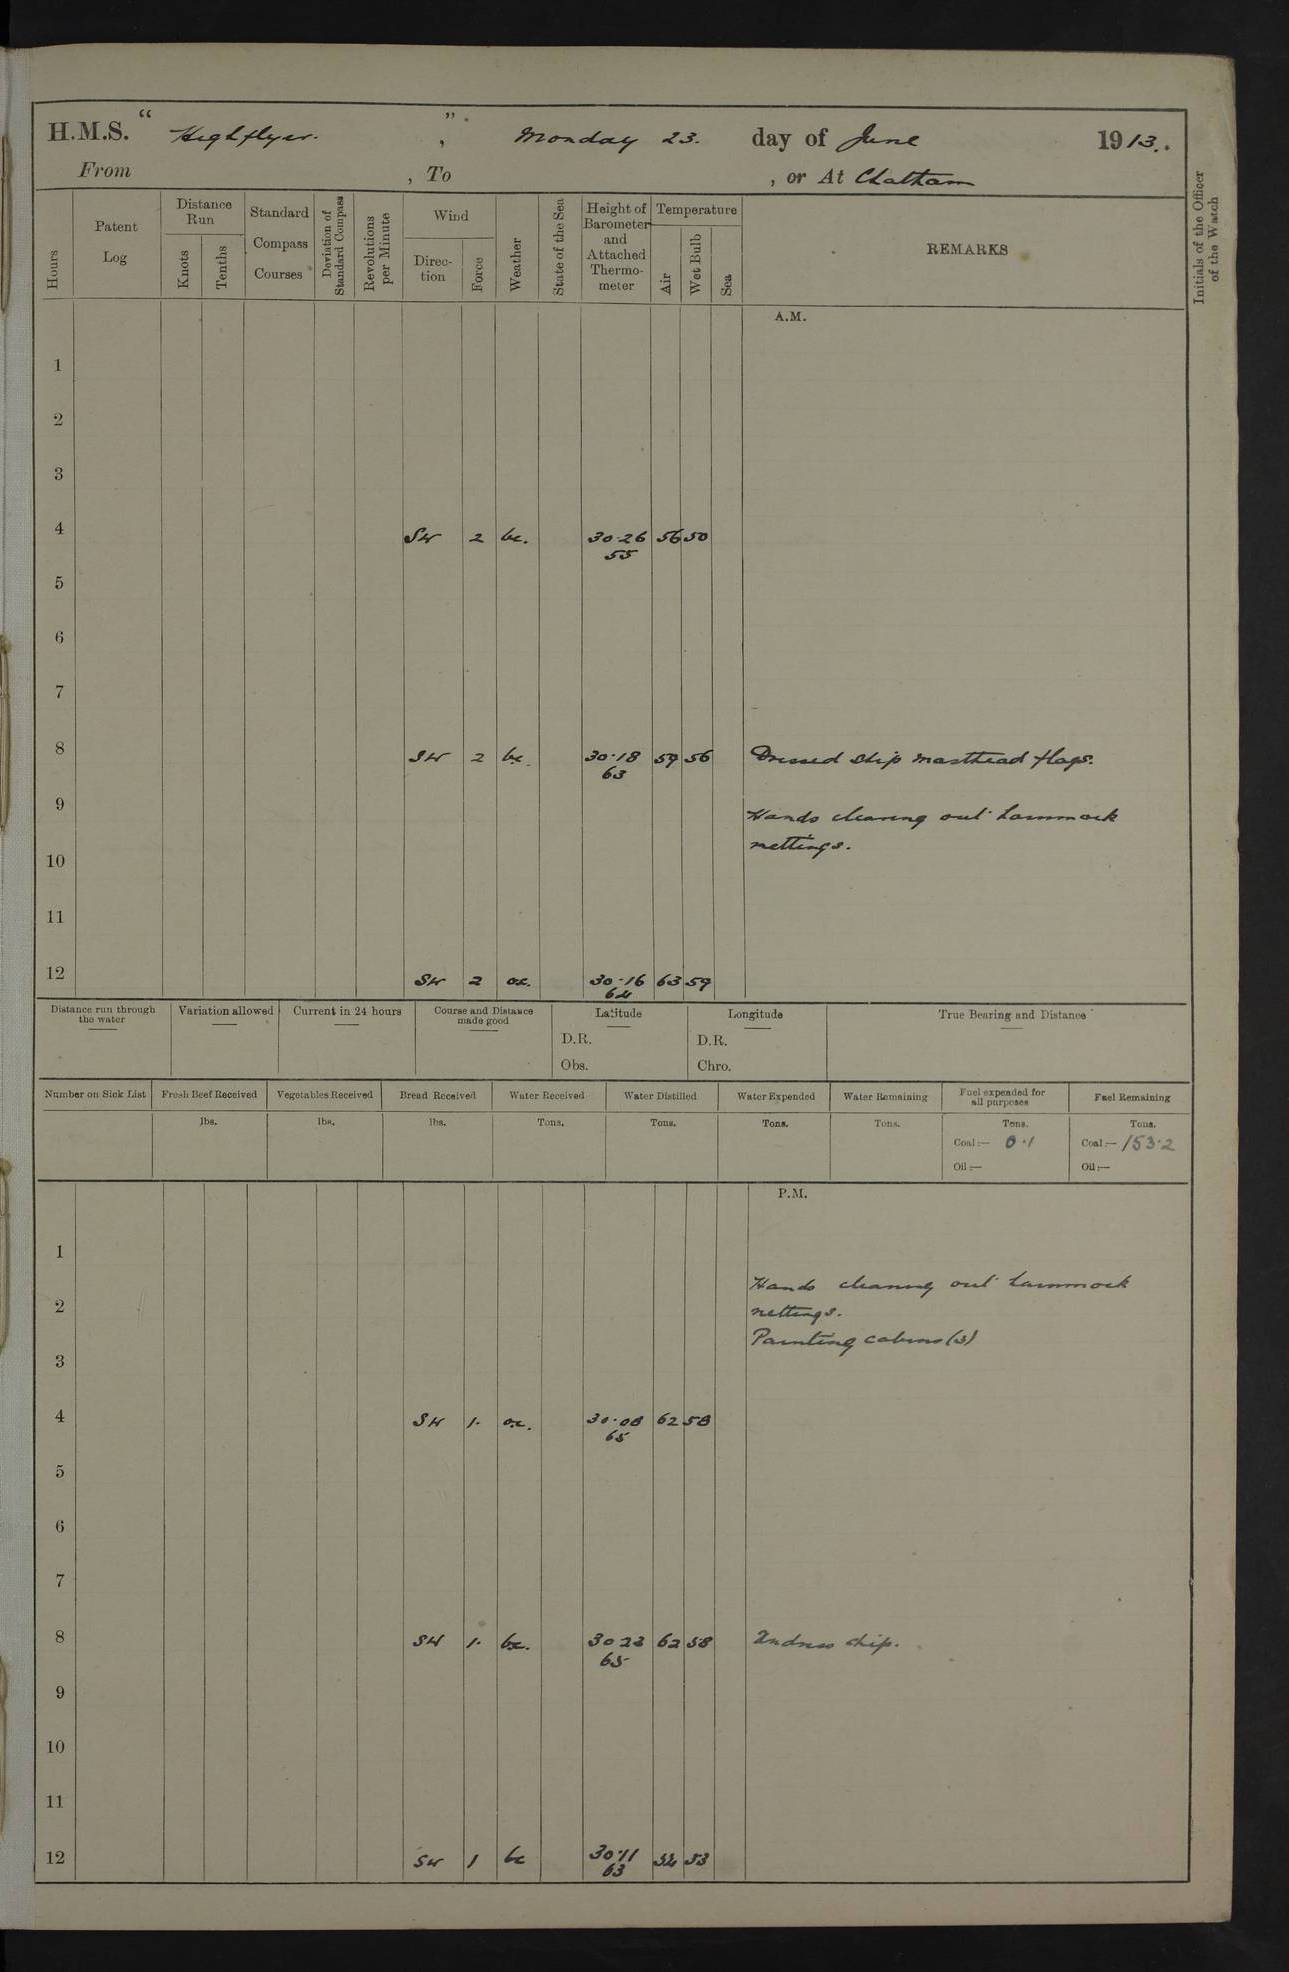 H.M.S. " Highflyer. ", Monday 23. day of June 1913.
From , To , or At Chatham
Hours
Patent Log
Distance Run
Knots
Tenths
Standard Compass Courses
Deviation of Standard Compass
Revolutions per Minute
Wind
Direction
Force
Weather
State of the Sea
Height of Barometer and Attached Thermometer
Temperature
Air
Wet Bulb
Sea
REMARKS
Initials of the Officer of the Watch
A.M.
1
2
3
4 SW 2 bc. 30·26 56 50
55
5
6
7
8 SW 2 bc. 30·18 59 56 Dressed ship masthead flags.
63
9 Hands clearing out hammock
nettings.
10
11
12 SW 2 oc. 30·16 63 59
64
Distance run through the water
Variation allowed
Current in 24 hours
Course and Distance made good
Latitude
D.R.
Obs.
Longitude
D.R.
Chro.
True Bearing and Distance
Number on Sick List
Fresh Beef Received
lbs.
Vegetables Received
lbs.
Bread Received
lbs.
Water Received
Tons.
Water Distilled
Tons.
Water Expended
Tons.
Water Remaining
Tons.
Fuel expended for all purposes
Tons.
Coal:— 0·1
Oil:—
Fuel Remaining
Tons.
Coal:— 153·2
Oil:—
P.M.
1
Hands cleaning out hammock
2 nettings.
Painting cabins (3)
3
4 SW 1. oc. 30·08 62 58
65
5
6
7
8 SW 1. bc. 30 23 62 58 Undress ship.
65
9
10
11
12 SW 1 bc 30·11 53
63